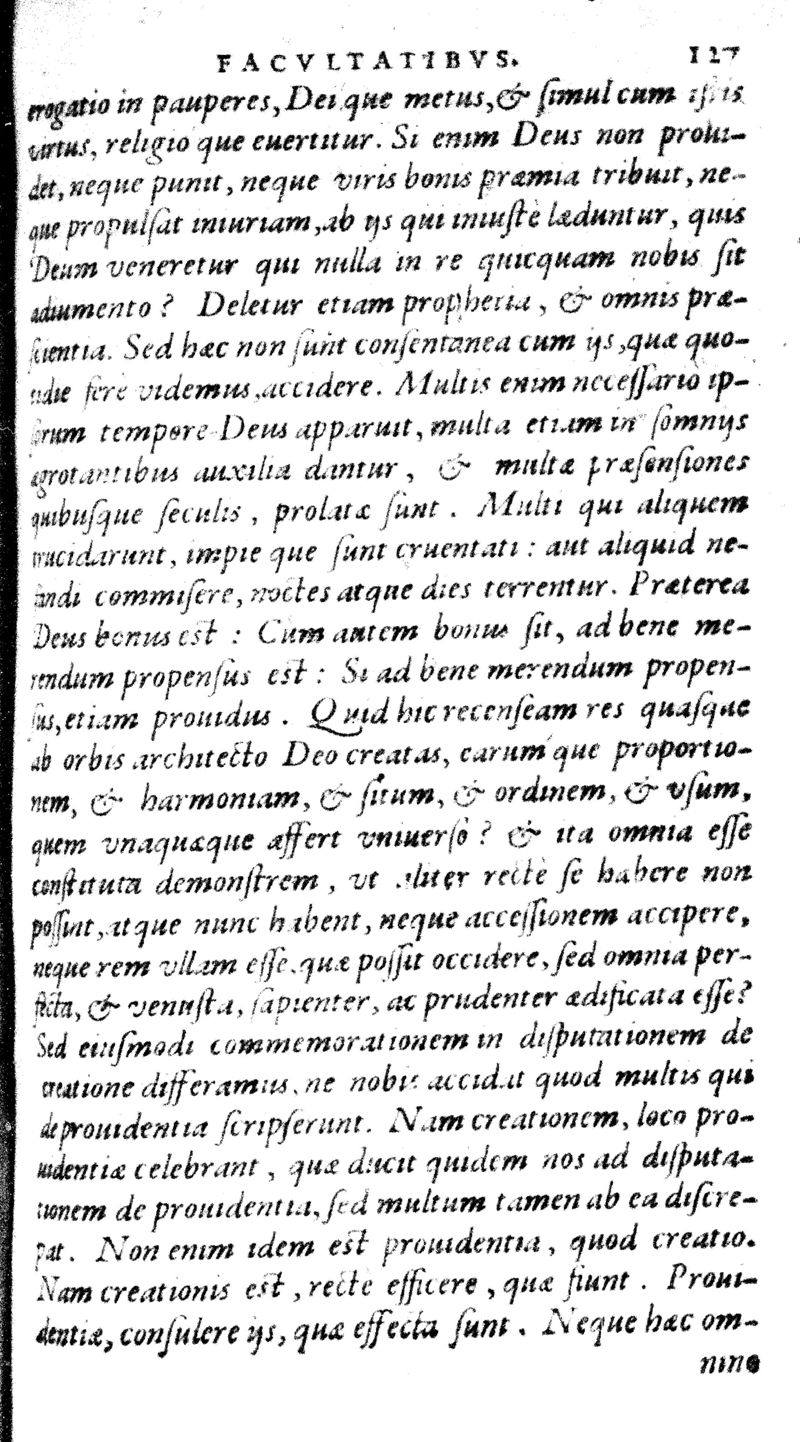 FACVLTATIBVS. 127
erogatio in pauperes, Dei que metus, & ſimul cum iſtis
virtus, religio que euertitur. Si enim Deus non proui-
det, neque punit, neque viris bonis præmia tribuit, ne-
que propulſat iniuriam, ab ijs qui iniuſtè læduntur, quis
Deum veneretur qui nulla in re quicquam nobis ſit
adiumento? Deletur etiam prophetia, & omnis præ-
ſcientia. Sed hæc non ſunt conſentanea cum ijs, quæ quo-
tidie fere videmus, accidere. Multis enim neceſſariò ip-
ſorum tempore Deus apparuit, multa etiam in ſomnijs
ægrotantibus auxilia dantur, & multæ præſenſiones
quibuſque ſeculis, prolatæ ſunt. Multi qui aliquem
trucidarunt, impie que ſunt cruentati: aut aliquid ne-
fandi commiſere, noctes atque dies terrentur. Præterea
Deus bonus eſt: Cum autem bonus ſit, ad bene me-
rendum propenſus eſt: Si ad bene merendum propen-
ſus, etiam prouidus. Quid hic recenſeam res quaſque
ab orbis architecto Deo creatas, earum que proportio-
nem, & harmoniam, & ſitum, & ordinem, & vſum,
quem vnaquæque affert vniuerſo? & ita omnia eſſe
conſtituta demonſtrem, vt aliter rectè ſe habere non
poſſint, atque nunc habent, neque acceſſionem accipere,
neque rem vllam eſſe, quæ poſſit occidere, ſed omnia per-
fecta, & venuſta, ſapienter, ac prudenter ædificata eſſe?
Sed eiuſmodi commemorationem in diſputationem de
creatione differamus, ne nobis accidat quod multis qui
de prouidentia ſcripſerunt. Nam creationem, loco pro-
uidentiæ celebrant, quæ ducit quidem nos ad diſputa-
tionem de prouidentia, ſed multum tamen ab ea diſcre-
pat. Non enim idem eſt prouidentia, quod creatio.
Nam creationis eſt, recte efficere, quæ fiunt. Proui-
dentiæ, conſulere ijs, quæ effecta ſunt. Neque hæc om-
nino